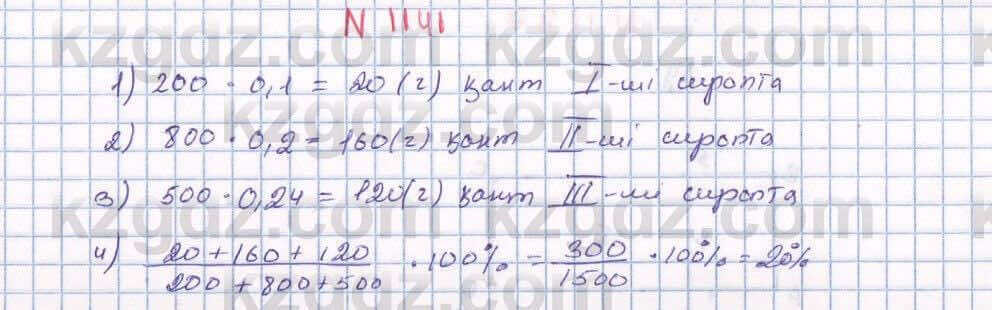 N 1141
1) 200 · 0,1 = 20 (г) қант I-ші сиропта
2) 800 · 0,2 = 160(г) қант II-ші сиропта
3) 500 · 0,24 = 120(г) қант III-ші сиропта
4) (20 + 160 + 120) / (200 + 800 + 500) · 100% = 300 / 1500 · 100% = 20%
kzgdz.com